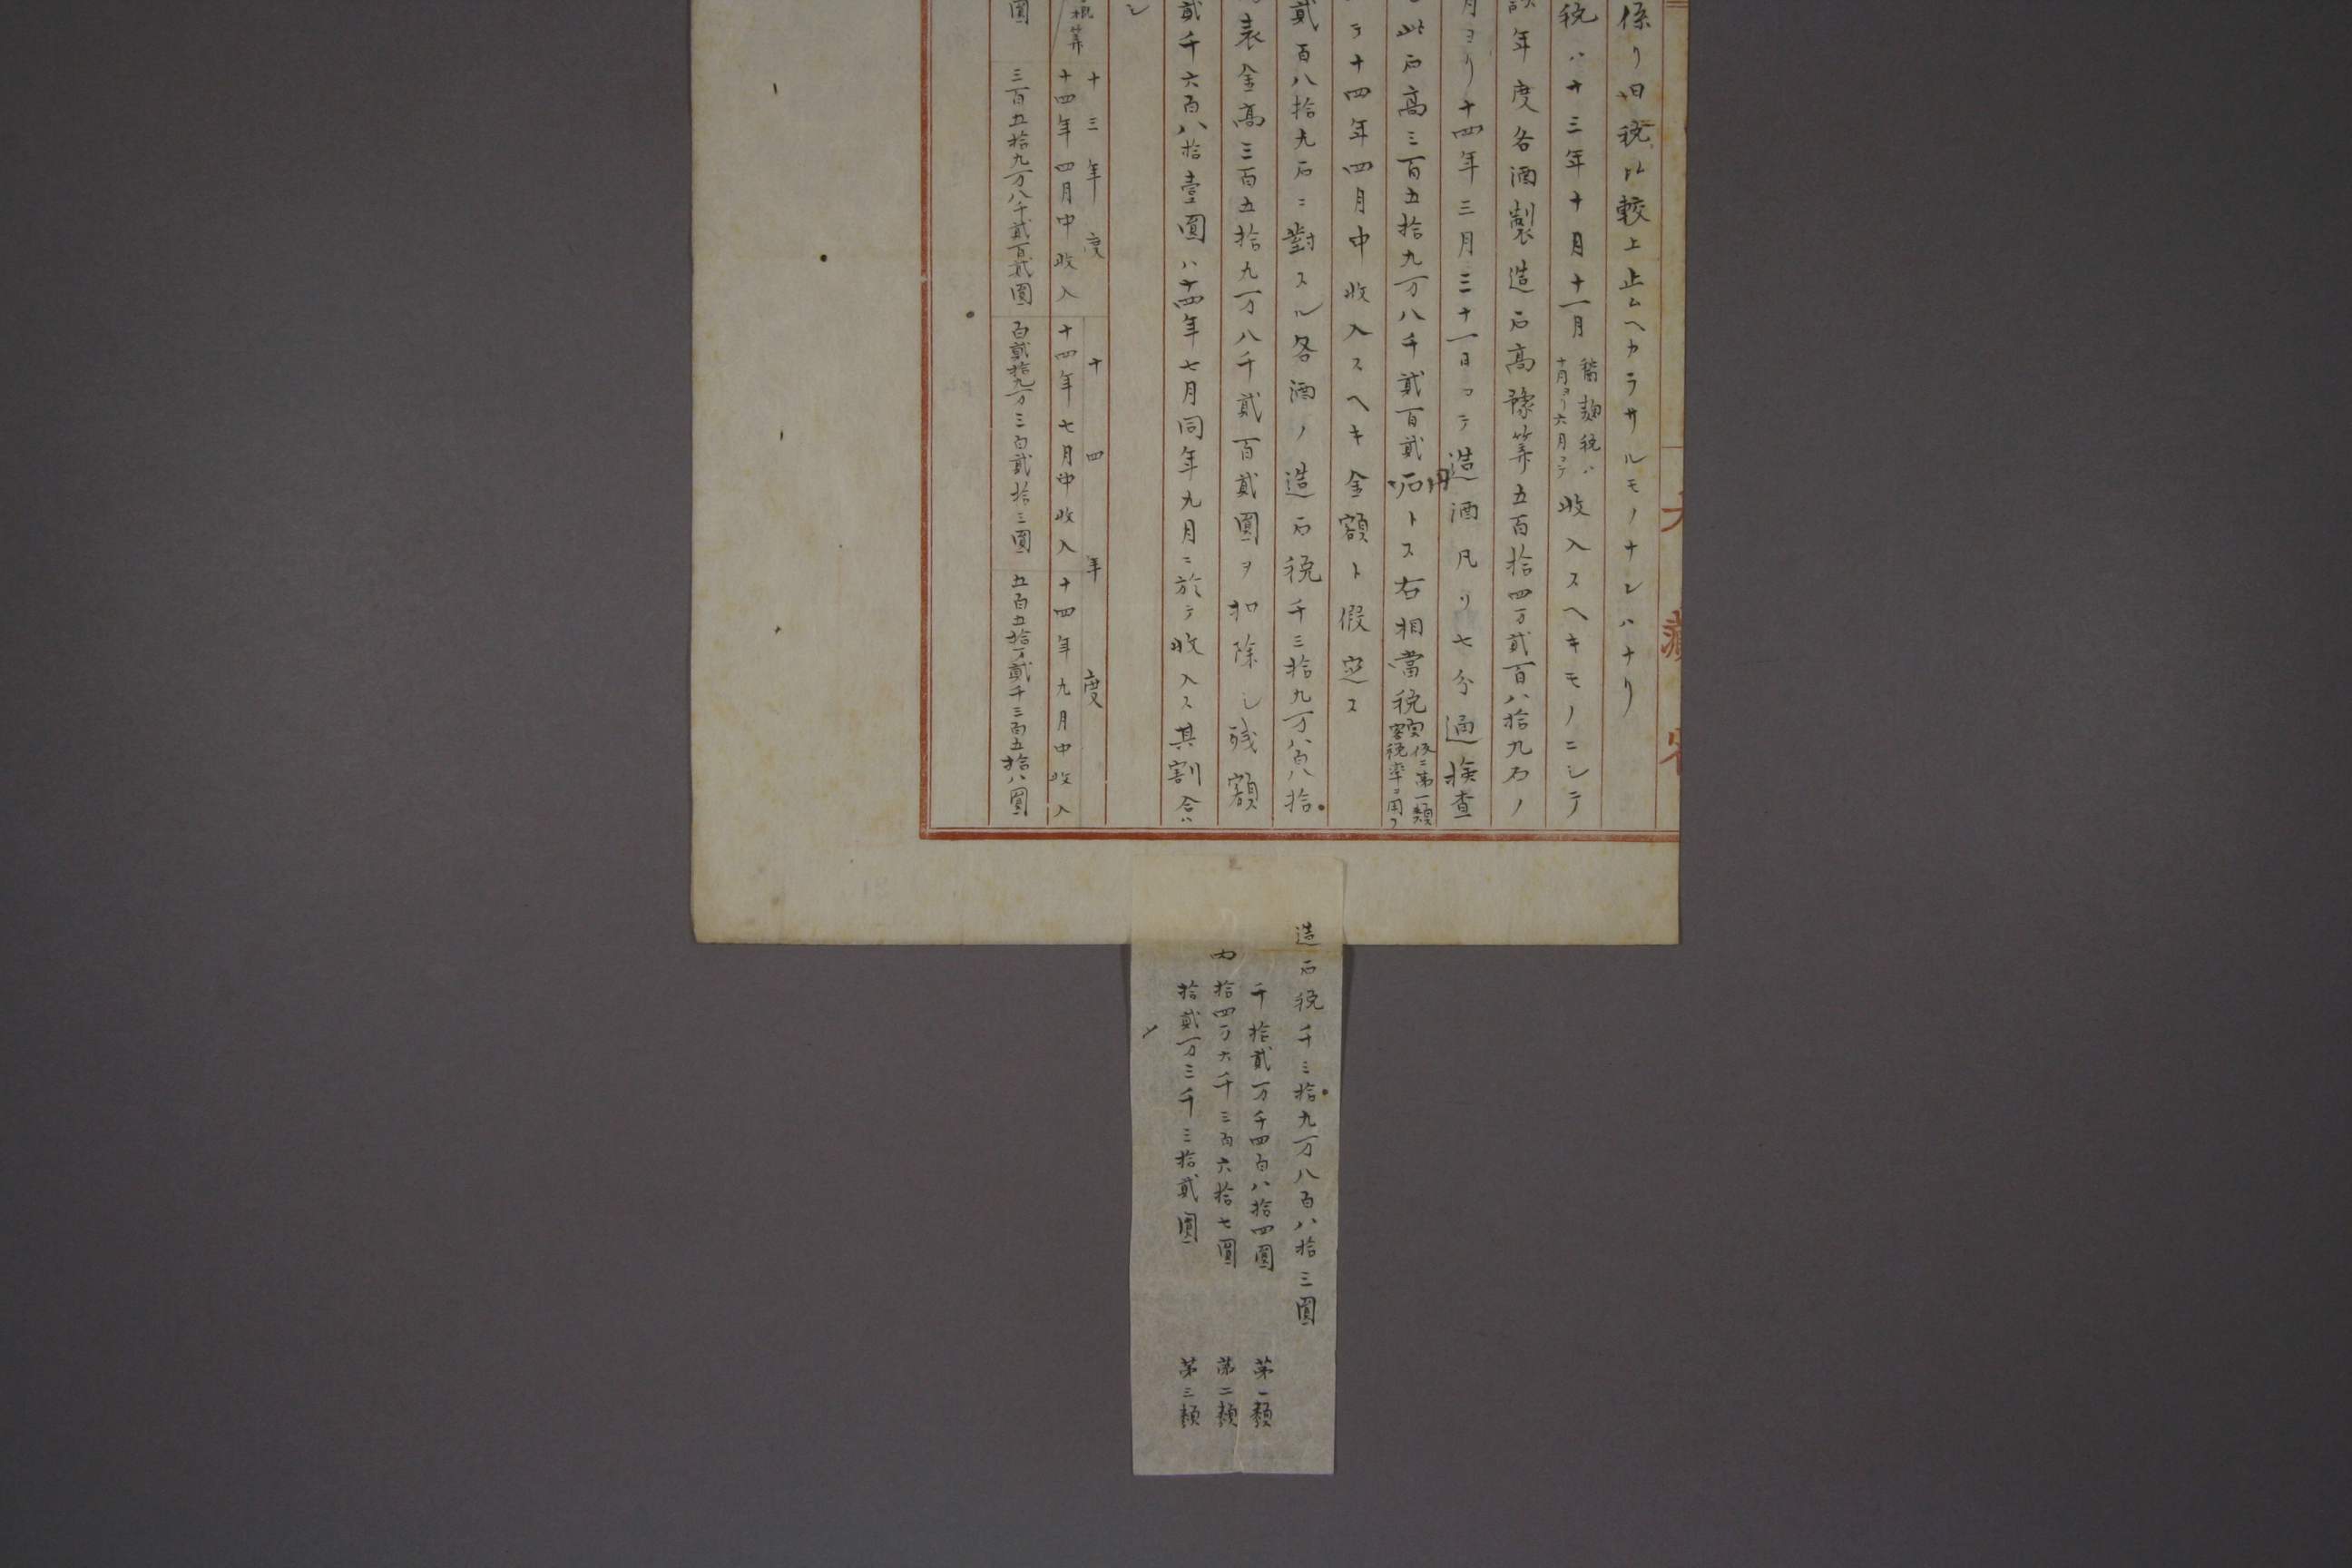 大藏省
係リ旧税ハ較上止ムヘカラサルモノナレハナリ
税ハ十三年十月十一月
醤麹税ハ
十月ヨリ六月マテ
收入スヘキモノニシテ
年度各酒製造石高豫算五百拾四万貳百八拾九石ノ
月ヨリ十四年三月三十一日マテ造酒凡リ七分通検査
此石高三百五拾九万八千貳百貳石トス右相當税
額仮ニ第一類
税率ヲ用フ
テ十四年四月中收入スヘキ金額ト假定ス
貳百八拾九石ニ對スル各酒ノ造石税千三拾九万八百八拾
表金高三百五拾九万八千貳百貳圓ヲ扣除シ残額
貳千六百八拾壹圓ハ十四年七月同年九月ニ於テ收入ス其割合ハ
シ
概算
十三年度
十四年度
十四年四月中收入
十四年七月中收入
十四年九月中收入
圓
三百五拾九万八千貳百貳圓
百貳拾九万三百貳拾三圓
五百五拾万貳千三百五拾八圓
造石税千三拾九万八百八拾三圓
千拾貳万千四百八拾四圓 第一類
内 拾四万六千三百六拾七圓 第二類
拾貳万三千三拾貳圓 第三類